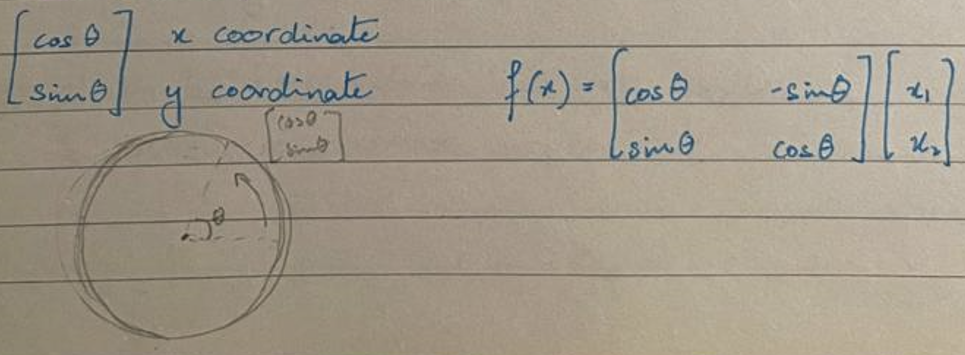 [cos θ] x coordinate
[sin θ] y coordinate
f(x) = [cos θ -sin θ] [x₁]
[sin θ cos θ] [x₂]
[cos θ]
[sin θ]
θ